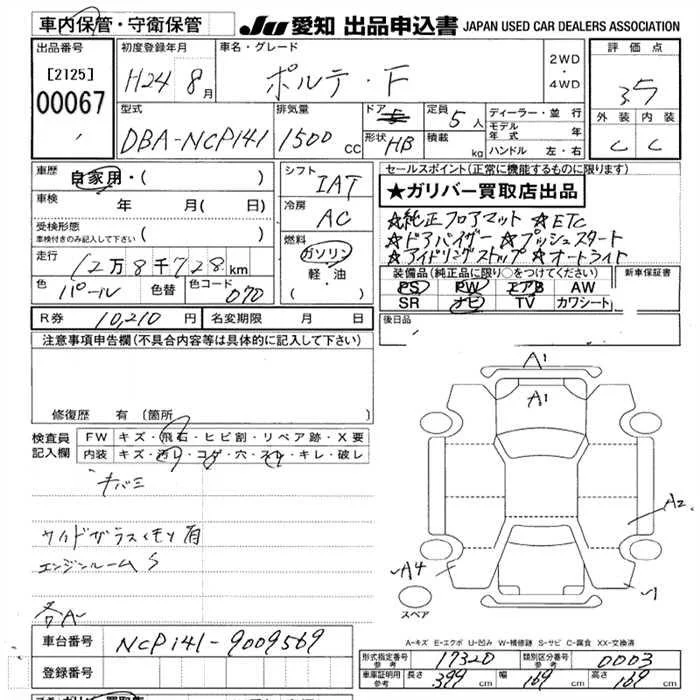 車内保管・守衛保管 JU 愛知 出品申込書 JAPAN USED CAR DEALERS ASSOCIATION
出品番号 [2125] 00067
初度登録年月 H24 8月
車名・グレード ポルテ・F
2WD・4WD
評価点 3.5
外装 内装
C C
型式 DBA-NCP141
排気量 1500 CC
ドア 5
形状 HB
定員 5人
積載 kg
ディーラー・並行
モデル年式 年
ハンドル 左・右
車歴 自家用・( )
車検 年 月( 日)
受検形態 車検付きのみ記入して下さい ( )
走行 12万8千728km
色 パール 色替 色コード 070
シフト IAT
冷房 AC
燃料 ガソリン 軽・油 ・( )
セールスポイント(正常に機能するものに限ります)
★ガリバー買取店出品
☆純正フロアマット ☆ETC
☆ドアバイザー ☆プッシュスタート
☆アイドリングストップ ☆オートライト
装備品(純正品に限り○をつけてください) 新車保証書
PS PW エアB AW
SR ナビ TV カワシート
後日品
R券 10,210円 名変期限 月 日
注意事項申告欄(不具合内容等は具体的に記入して下さい)
修復歴 有(箇所
検査員記入欄
FW キズ・飛石・ヒビ割・リペア跡・X要
内装 キズ・汚レ・コゲ・穴・スレ・キレ・破レ
キバミ
サイドガラスくモリ有
エンジンルームS
各A
A1
A1
A2
A4
スペア
A-キズ E-エクボ U-凹み W-補修跡 S-サビ C-腐食 XX-交換済
車台番号 NCP141-9009569
登録番号
形式指定番号 参考 17320 類別区分番号 参考 0003
車庫証明用 参考 長さ 399 幅 169 高さ 169